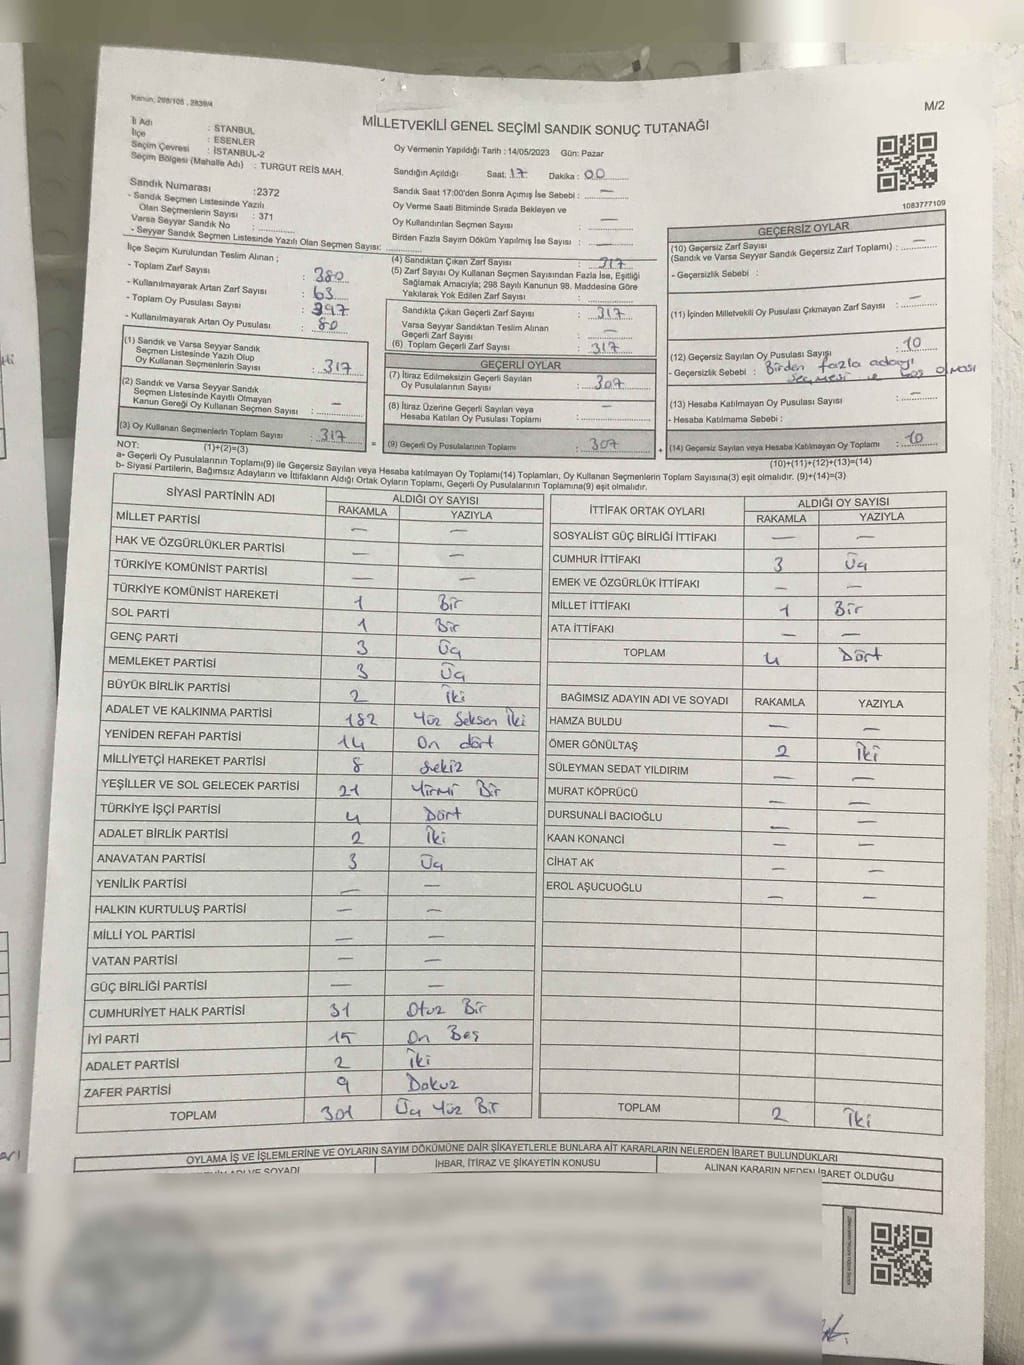 Kanun: 298/105 , 2839/4
M/2
MİLLETVEKİLİ GENEL SEÇİMİ SANDIK SONUÇ TUTANAĞI
İl Adı : STANBUL
İlçe : ESENLER
Seçim Çevresi : İSTANBUL-2
Seçim Bölgesi (Mahalle Adı) : TURGUT REİS MAH.
Sandık Numarası :2372
- Sandık Seçmen Listesinde Yazılı
Olan Seçmenlerin Sayısı : 371
Varsa Seyyar Sandık No :
- Seyyar Sandık Seçmen Listesinde Yazılı Olan Seçmen Sayısı:
İlçe Seçim Kurulundan Teslim Alınan ;
- Toplam Zarf Sayısı : 380
- Kullanılmayarak Artan Zarf Sayısı : 63
- Toplam Oy Pusulası Sayısı : 397
- Kullanılmayarak Artan Oy Pusulası : 80
(1) Sandık ve Varsa Seyyar Sandık
Seçmen Listesinde Yazılı Olup
Oy Kullanan Seçmenlerin Sayısı : 317
(2) Sandık ve Varsa Seyyar Sandık
Seçmen Listesinde Kayıtlı Olmayan
Kanun Gereği Oy Kullanan Seçmen Sayısı : —
(3) Oy Kullanan Seçmenlerin Toplam Sayısı : 317
Oy Vermenin Yapıldığı Tarih : 14/05/2023 Gün: Pazar
Sandığın Açıldığı Saat: 17 Dakika : 00
Sandık Saat 17:00'den Sonra Açımış İse Sebebi : —
Oy Verme Saati Bitiminde Sırada Bekleyen ve
Oy Kullandırılan Seçmen Sayısı : —
Birden Fazla Sayım Döküm Yapılmış İse Sayısı : —
(4) Sandıktan Çıkan Zarf Sayısı : 317
(5) Zarf Sayısı Oy Kullanan Seçmen Sayısından Fazla İse, Eşitliği
Sağlamak Amacıyla; 298 Sayılı Kanunun 98. Maddesine Göre
Yakılarak Yok Edilen Zarf Sayısı :
Sandıkta Çıkan Geçerli Zarf Sayısı : 317
Varsa Seyyar Sandıktan Teslim Alınan
Geçerli Zarf Sayısı : —
(6) Toplam Geçerli Zarf Sayısı : 317
GEÇERLİ OYLAR
(7) İtiraz Edilmeksizin Geçerli Sayılan
Oy Pusulalarının Sayısı : 307
(8) İtiraz Üzerine Geçerli Sayılan veya
Hesaba Katılan Oy Pusulası Toplamı : —
= (9) Geçerli Oy Pusulalarının Toplamı : 307 +
1083777109
GEÇERSİZ OYLAR
(10) Geçersiz Zarf Sayısı
(Sandık ve Varsa Seyyar Sandık Geçersiz Zarf Toplamı) : —
- Geçersizlik Sebebi :
(11) İçinden Milletvekili Oy Pusulası Çıkmayan Zarf Sayısı : —
(12) Geçersiz Sayılan Oy Pusulası Sayısı : 10
- Geçersizlik Sebebi : Birden fazla adayı
seçmesi ve boş olması
(13) Hesaba Katılmayan Oy Pusulası Sayısı : —
- Hesaba Katılmama Sebebi :
(14) Geçersiz Sayılan veya Hesaba Katılmayan Oy Toplamı : 10
NOT: (1)+(2)=(3)
(10)+(11)+(12)+(13)=(14)
a- Geçerli Oy Pusulalarının Toplamı(9) ile Geçersiz Sayılan veya Hesaba katılmayan Oy Toplamı(14) Toplamları, Oy Kullanan Seçmenlerin Toplam Sayısına(3) eşit olmalıdır. (9)+(14)=(3)
b- Siyasi Partilerin, Bağımsız Adayların ve İttifakların Aldığı Ortak Oyların Toplamı, Geçerli Oy Pusulalarının Toplamına(9) eşit olmalıdır.
SİYASİ PARTİNİN ADI ALDIĞI OY SAYISI
RAKAMLA YAZIYLA
MİLLET PARTİSİ — —
HAK VE ÖZGÜRLÜKLER PARTİSİ — —
TÜRKİYE KOMÜNİST PARTİSİ — —
TÜRKİYE KOMÜNİST HAREKETİ 1 Bir
SOL PARTİ 1 Bir
GENÇ PARTİ 3 Üç
MEMLEKET PARTİSİ 3 Üç
BÜYÜK BİRLİK PARTİSİ 2 İki
ADALET VE KALKINMA PARTİSİ 182 Yüz Seksen İki
YENİDEN REFAH PARTİSİ 14 On dört
MİLLİYETÇİ HAREKET PARTİSİ 8 sekiz
YEŞİLLER VE SOL GELECEK PARTİSİ 21 Yirmi Bir
TÜRKİYE İŞÇİ PARTİSİ 4 Dört
ADALET BİRLİK PARTİSİ 2 İki
ANAVATAN PARTİSİ 3 Üç
YENİLİK PARTİSİ — —
HALKIN KURTULUŞ PARTİSİ — —
MİLLİ YOL PARTİSİ — —
VATAN PARTİSİ — —
GÜÇ BİRLİĞİ PARTİSİ — —
CUMHURİYET HALK PARTİSİ 31 Otuz Bir
İYİ PARTİ 15 On Beş
ADALET PARTİSİ 2 İki
ZAFER PARTİSİ 9 Dokuz
TOPLAM 301 Üç Yüz Bir
İTTİFAK ORTAK OYLARI ALDIĞI OY SAYISI
RAKAMLA YAZIYLA
SOSYALİST GÜÇ BİRLİĞİ İTTİFAKI — —
CUMHUR İTTİFAKI 3 Üç
EMEK VE ÖZGÜRLÜK İTTİFAKI — —
MİLLET İTTİFAKI 1 Bir
ATA İTTİFAKI — —
TOPLAM 4 Dört
BAĞIMSIZ ADAYIN ADI VE SOYADI RAKAMLA YAZIYLA
HAMZA BULDU — —
ÖMER GÖNÜLTAŞ 2 İki
SÜLEYMAN SEDAT YILDIRIM — —
MURAT KÖPRÜCÜ — —
DURSUNALİ BACIOĞLU — —
KAAN KONANCİ — —
CİHAT AK — —
EROL AŞUCUOĞLU — —
TOPLAM 2 İki
OYLAMA İŞ VE İŞLEMLERİNE VE OYLARIN SAYIM DÖKÜMÜNE DAİR ŞİKAYETLERLE BUNLARA AİT KARARLARIN NELERDEN İBARET BULUNDUKLARI
ADI VE SOYADI İHBAR, İTİRAZ VE ŞİKAYETİN KONUSU ALINAN KARARIN NEDEN İBARET OLDUĞU